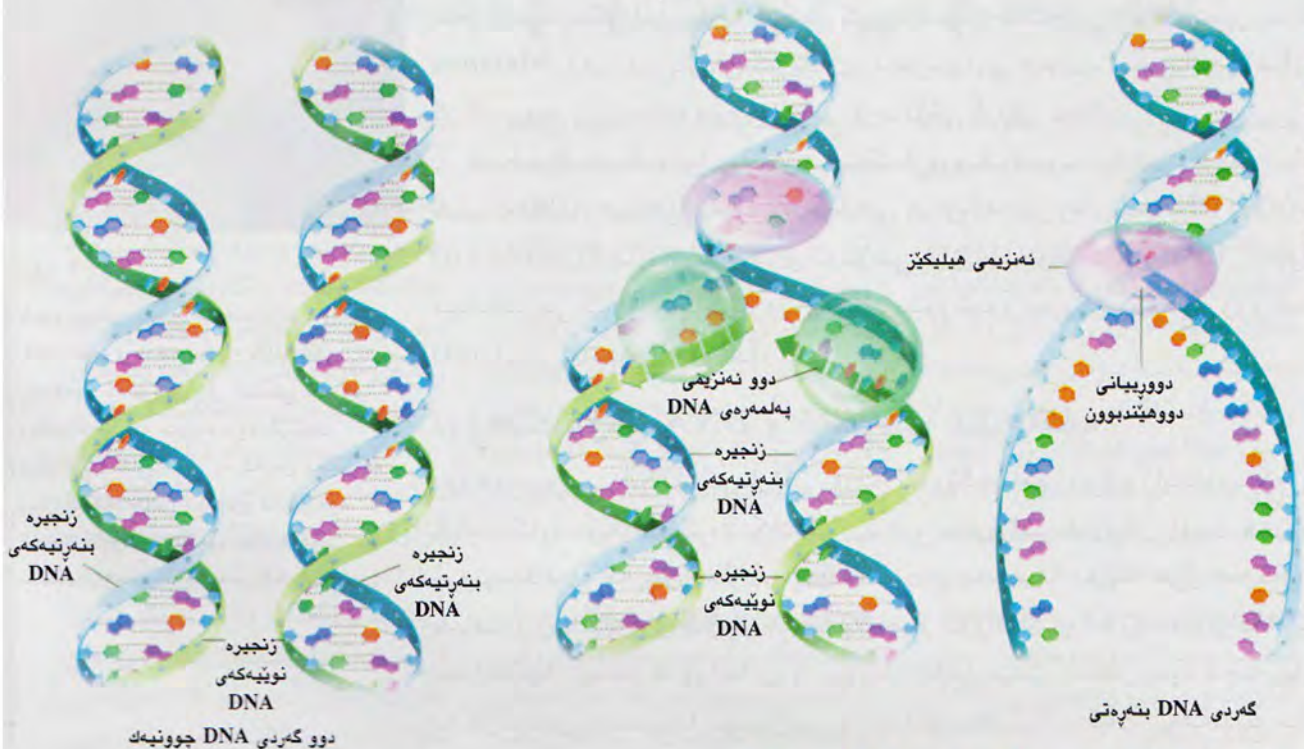 ئەنزیمی هیلیکێز
دووڕییانی
دووهێندبوون
گەردی DNA بنەڕەتی
دوو ئەنزیمی
پەلمەرەی DNA
زنجیرە
بنەڕتیەکەی
DNA
زنجیرە
نوێیەکەی
DNA
زنجیرە
بنەڕتیەکەی
DNA
زنجیرە
بنەڕتیەکەی
DNA
زنجیرە
نوێیەکەی
DNA
دوو گەردی DNA چوونیەك